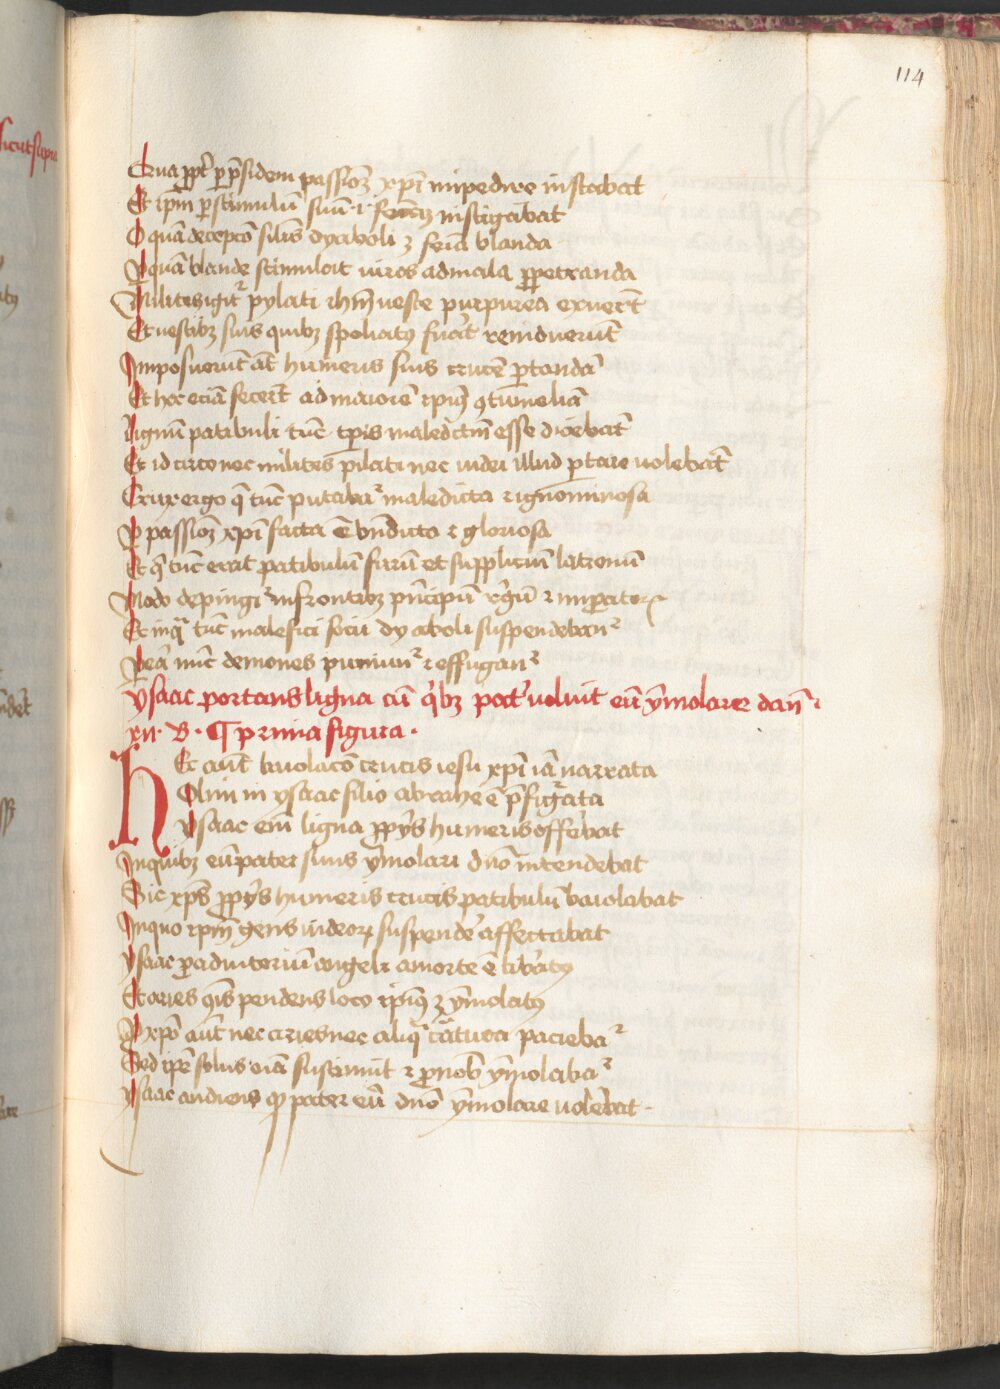 114
sicut supra
Qua ppt̄ p p̄sidem passionē xpi īmpedire instabat
Et ip̄m p stimulū suū .i. serꝰ instigabat
O quā decepcō filiis dyaboli ⁊ feīa blanda
Quā blande stimulat viros ad mala ppetranda
Milites igit̄ pylati ihm̄ veste purpurea exuert̄
Et vestibꝫ suis quibꝫ spoliatꝰ fuāt reinduerūt
Imposuerūt aūt humeris suis crucē portandā
Et hoc eciā fecert̄ ad maiorē ipiꝰ ꝯtumeliā
Lignū patibuli tūc tp̄is maledictū esse dicebāt
Et idcirco nec milites pilati nec iudei illud portare volebāt
Crux ergo q̄ tūc putabat̄ maledicta ⁊ ignominiosa
P passionē xpi facta ē bn̄dicta ⁊ gloriosa
Et q̄ tūc erat patibulū furū et suppliciū latronū
Modo depingit̄ in frontibꝫ pn̄cipū rgū ⁊ impatoꝝ
Et in q̄ tūc malefici socii dyaboli suspendebant̄
P eā nūc demones puniunt̄ ⁊ effugant̄
Ysaac portans ligna cū q̄bꝫ pat̄ voluit eū ymolare dān̄r
xii. B. ¶ prima figura.
Hec aūt baiolacō crucis iesu xpi iā narrata
Olim in ysaac filio abrahe ē p̄figurata
Ysaac em̄ ligna ppys humeris offebat
In quibꝫ eū pater suus ymolari dn̄o intendebat
Sic xps̄ ppys humeris crucis patibulū baiolabat
In quo ip̄m gens iudeoꝝ suspende affectabat
Ysaac p adiutoriū angeli a morte ē libatꝰ
Et aries ꝯis pendens loco ipiꝰ ⁊ ymolatꝰ
P xpo aūt nec aries nec aliq̄ cātura pacieba᷑
Sed ip̄e solus oīa sustinuit ⁊ p nob̄ ymolaba᷑
Ysaac audiens qꝫ pater eū dn̄o ymolare volebat.